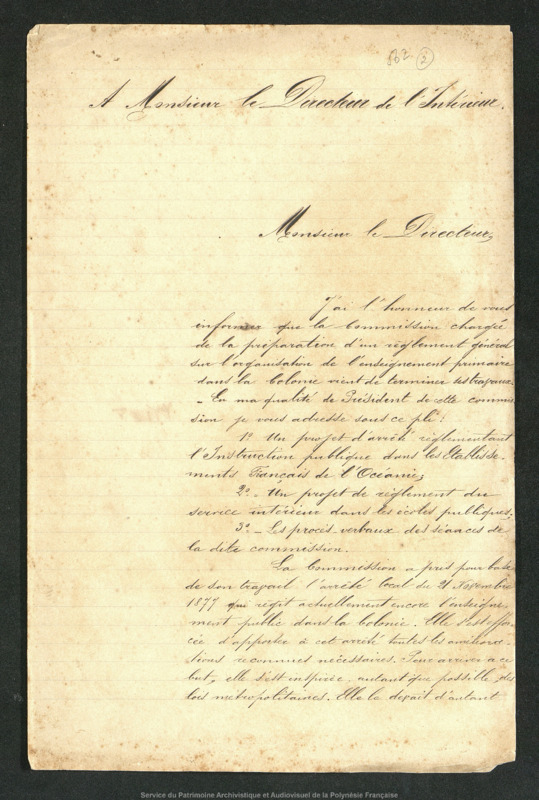 862 (2)
A Monsieur le Directeur de l'Intérieur.
Monsieur le Directeur,
J'ai l'honneur de vous
informer que la Commission chargée
de la préparation d'un règlement général
sur l'organisation de l'enseignement primaire
dans la Colonie vient de terminer ses travaux.
- En ma qualité de Président de cette commis-
sion je vous adresse sous ce pli :
1º Un projet d'arrêté réglementant
l'Instruction publique dans les Etablisse-
ments Français de l'Océanie;
2º - Un projet de règlement du
service intérieur dans les écoles publiques;
3º - Les procès-verbaux des séances de
la dite commission.
La Commission a pris pour base
de son travail l'arrêté local du 21 Novembre
1877 qui régit actuellement encore l'enseigne-
ment public dans la colonie. Elle s'est effor-
cée d'apporter à cet arrêté toutes les améliora-
tions reconnues nécessaires. Pour arriver à ce
but, elle s'est inspirée, autant que possible, des
lois métropolitaines. Elle le devait d'autant
Service du Patrimoine Archivistique et Audiovisuel de la Polynésie Française